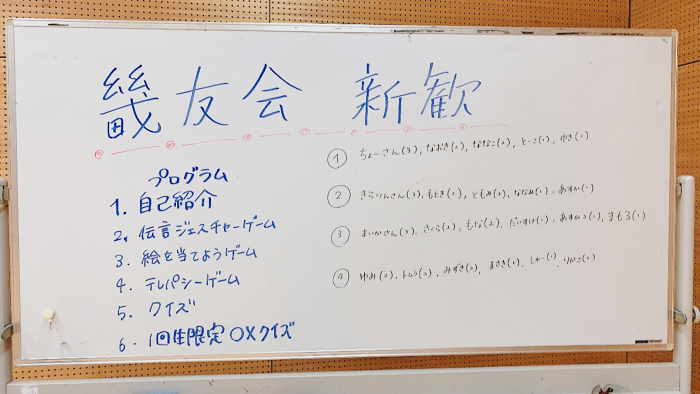 畿友会 新歓
プログラム
1. 自己紹介
2. 伝言ジェスチャーゲーム
3. 絵を当てようゲーム
4. テレパシーゲーム
5. クイズ
6. 1回生限定 〇×クイズ
① ちょーさん(3), なおき(2), ななこ(2), とーこ(1), ゆき(1)
② きらりんさん(3), もとき(2), ともみ(2), ななみ(1), あすか(1)
③ まいかさん(3), さくら(2), もな(2), だいすけ(1), あすか2(1), まもる(1)
④ ゆみ(2), トムラ(2), みずき(2), まさき(1), しゅー(1), りかこ(1)